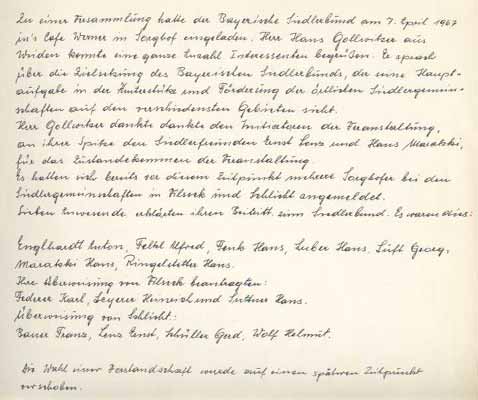 Zu einer Versammlung hatte der Bayerische Siedlerbund am 7. April 1967
in's Cafe Werner in Sorghof eingeladen. Herr Hans Gollwitzer aus
Weiden konnte eine ganze Anzahl Interessenten begrüßen. Er sprach
über die Zielsetzung des Bayerischen Siedlerbunds, der seine Haupt-
aufgabe in der Unterstütz und Förderung der örtlichen Siedlergemein-
schaften auf den verschiedensten Gebieten sieht.
Herr Gollwitzer dankte dankte den Initiatoren der Veranstaltung,
an ihrer Spitze den Siedlerfreunden Ernst Lenz und Hans Maratski,
für das Zustandekommen der Veranstaltung.
Es hatten sich bereits vor diesem Zeitpunkt mehrere Sorghofer bei den
Siedlergemeinschaften in Vilseck und Schlicht angemeldet.
Sieben Anwesende erklärten ihren Beitritt zum Siedlerbund. Es waren dies:
Englhardt Anton, Feltl Alfred, Fenk Hans, Luber Hans, Lüft Georg,
Maratski Hans, Ringelstetter Hans.
Ihre Überweisung von Vilseck beantragten:
Federer Karl, Heinrich und Luttner Hans.
Überweisung von Schlicht:
Bauer Franz, Lenz Ernst, Schüller Gerd, Wolf Helmut.
Die Wahl einer Vorstandschaft wurde auf einen späteren Zeitpunkt
verschoben.